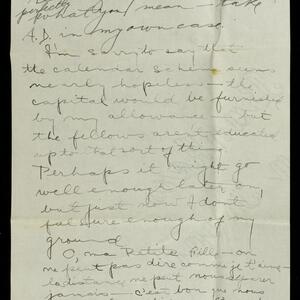 perfectly
what you mean — take
A. D. in my own case.
I'm sorry to say that
the calendar scheme seems
nearly hopeless — the
capital would be furnished
by my allowance — but
the fellows aren't educated
up to that sort of thing.
Perhaps it might go
well enough later on,
but just now I don't
feel sure enough of my
ground.
O, ma Petite Fille — on
ne peut pas dire comme je t'aime —
la distance ne peut nous séparer
jamais — c'est bon que nous